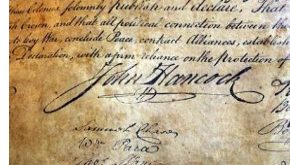 these Colonies, solemnly publish and declare, That
Crown, and that all political connection between the
conclude Peace, contract Alliances, establish
Declaration, with a firm reliance on the protection of
John Hancock
Samuel Chase
Wm Paca